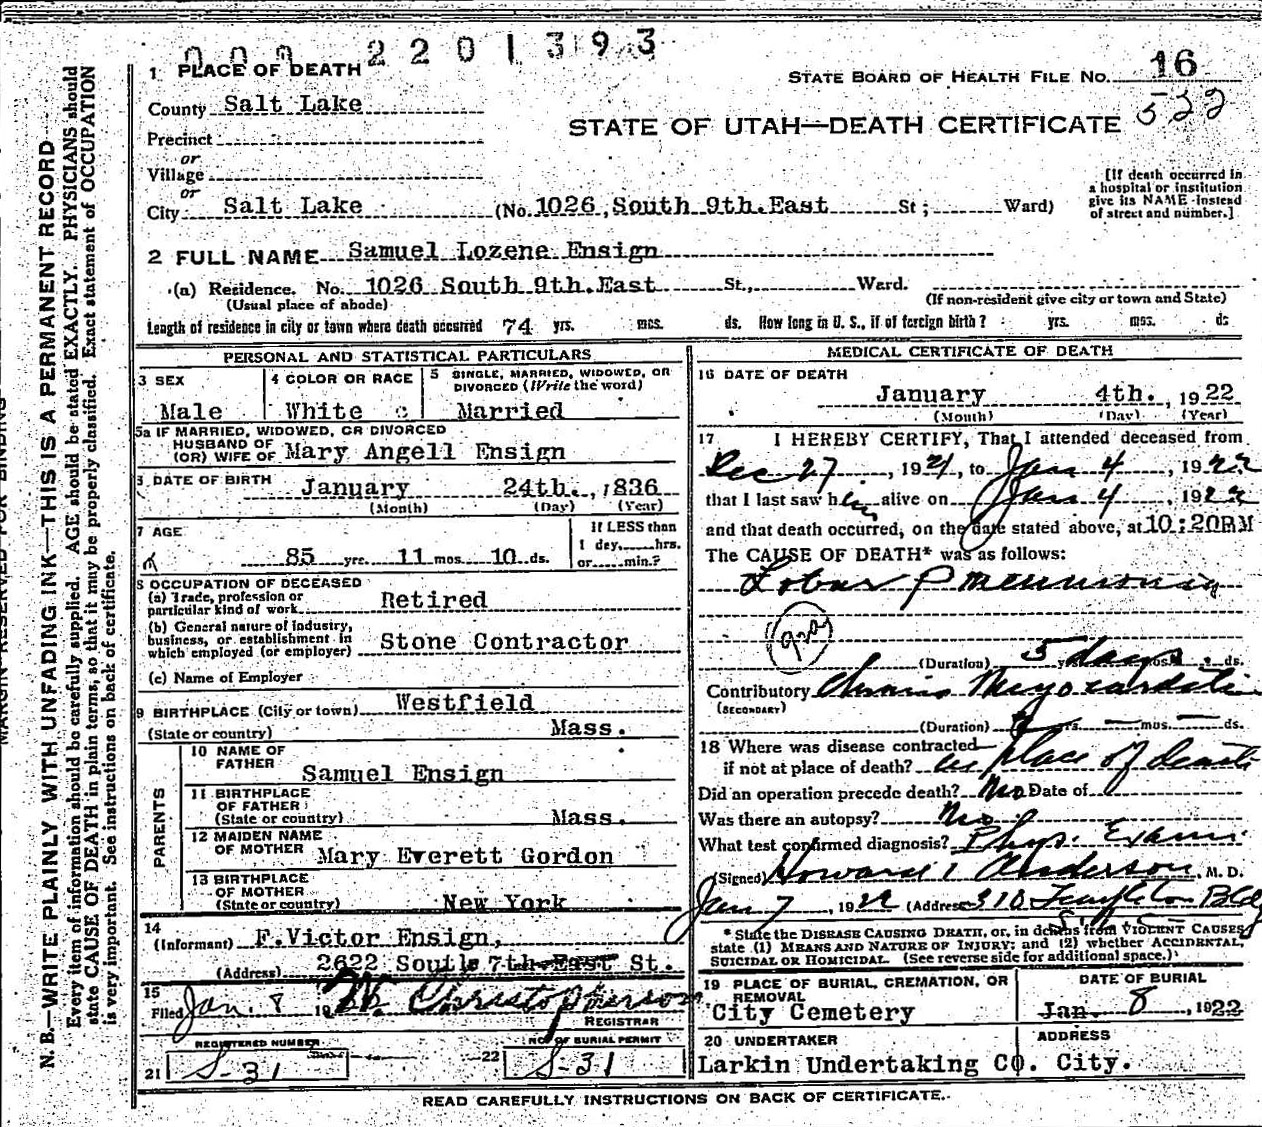 000 2201393
1 PLACE OF DEATH
STATE BOARD OF HEALTH FILE No. 16
County Salt Lake
522
STATE OF UTAH—DEATH CERTIFICATE
Precinct
or
Village
or
City Salt Lake (No. 1026, South 9th. East St; Ward)
[If death occurred in
a hospital or institution
give its NAME instead
of street and number.]
2 FULL NAME Samuel Lozene Ensign
(a) Residence. No. 1026 South 9th. East St., Ward.
(Usual place of abode) (If non-resident give city or town and State)
Length of residence in city or town where death occurred 74 yrs. mos. ds. How long in U. S., if of foreign birth? yrs. mos. ds
PERSONAL AND STATISTICAL PARTICULARS
3 SEX
Male
4 COLOR OR RACE
White
5 SINGLE, MARRIED, WIDOWED, OR
DIVORCED (Write the word)
Married
5a IF MARRIED, WIDOWED, OR DIVORCED
HUSBAND OF
(OR) WIFE OF Mary Angell Ensign
6 DATE OF BIRTH January 24th., 1836
(Month) (Day) (Year)
7 AGE
85 yrs. 11 mos. 10 ds.
If LESS than
1 day, hrs.
or min.?
8 OCCUPATION OF DECEASED
(a) Trade, profession or
particular kind of work Retired
(b) General nature of industry,
business, or establishment in
which employed (or employer) Stone Contractor
(c) Name of Employer
9 BIRTHPLACE (City or town) Westfield
(State or country) Mass.
PARENTS
10 NAME OF
FATHER
Samuel Ensign
11 BIRTHPLACE
OF FATHER
(State or country) Mass.
12 MAIDEN NAME
OF MOTHER Mary Everett Gordon
13 BIRTHPLACE
OF MOTHER
(State or country) New York
14
(Informant) F. Victor Ensign,
(Address) 2622 South 7th East St.
15
Filed Jan. 8 19 22 W. Christopherson
REGISTRAR
REGISTERED NUMBER
21 S-31
NO. OF BURIAL PERMIT
22 S-31
MEDICAL CERTIFICATE OF DEATH
16 DATE OF DEATH
January 4th., 1922
(Month) (Day) (Year)
17 I HEREBY CERTIFY, That I attended deceased from
Dec 27, 1921, to Jan 4, 1922
that I last saw him alive on Jan 4, 1922
and that death occurred, on the date stated above, at 10:20PM
The CAUSE OF DEATH* was as follows:
Lobar Pneumonia
(Duration) 5 days yrs. mos. ds.
Contributory Chronic Myocarditis
(SECONDARY)
(Duration) yrs. — mos. — ds.
18 Where was disease contracted
if not at place of death? at place of death
Did an operation precede death? No Date of
Was there an autopsy? No
What test confirmed diagnosis? Phys. Exam.
(Signed) Howard T Anderson, M. D.
Jan 7, 1922 (Address 310 Templeton Bldg
S. L. City
* State the DISEASE CAUSING DEATH, or, in deaths from VIOLENT CAUSES,
state (1) MEANS AND NATURE OF INJURY; and (2) whether ACCIDENTAL,
SUICIDAL OR HOMICIDAL. (See reverse side for additional space.)
19 PLACE OF BURIAL, CREMATION, OR
REMOVAL
City Cemetery
DATE OF BURIAL
Jan. 8, 1922
20 UNDERTAKER
Larkin Undertaking CO. City.
ADDRESS
READ CAREFULLY INSTRUCTIONS ON BACK OF CERTIFICATE.
MARGIN RESERVED FOR BINDING
N. B.—WRITE PLAINLY WITH UNFADING INK—THIS IS A PERMANENT RECORD
Every item of information should be carefully supplied. AGE should be stated EXACTLY. PHYSICIANS should
state CAUSE OF DEATH in plain terms, so that it may be properly classified. Exact statement of OCCUPATION
is very important. See instructions on back of certificate.